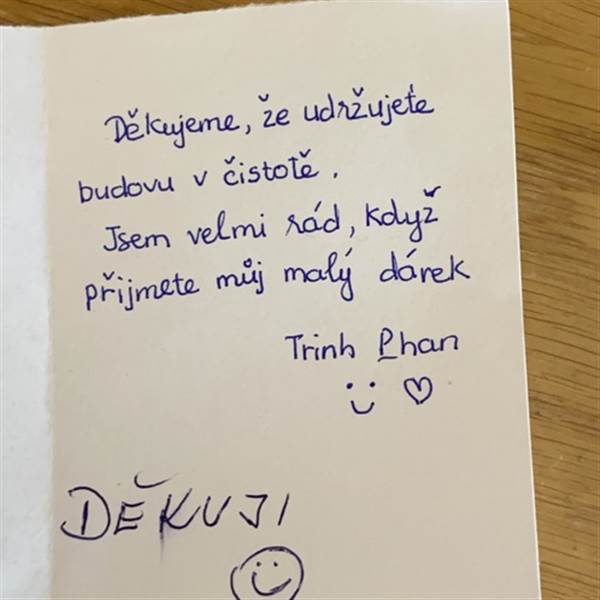 Děkujeme, že udržujeťe
budovu v čistotě.
Jsem velmi rád, když
přijmete můj malý dárek
Trinh Phan
DĚKUJI